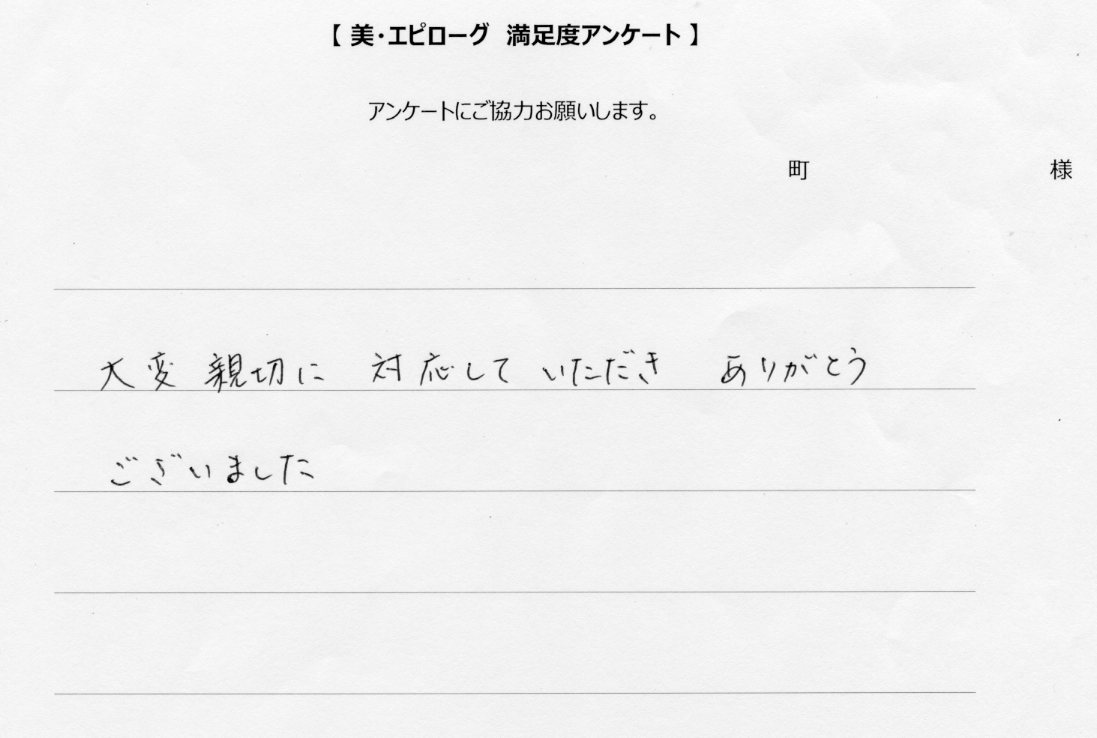 【 美・エピローグ 満足度アンケート 】
アンケートにご協力お願いします。
町 様
大変親切に 対応して いただき ありがとう
ございました